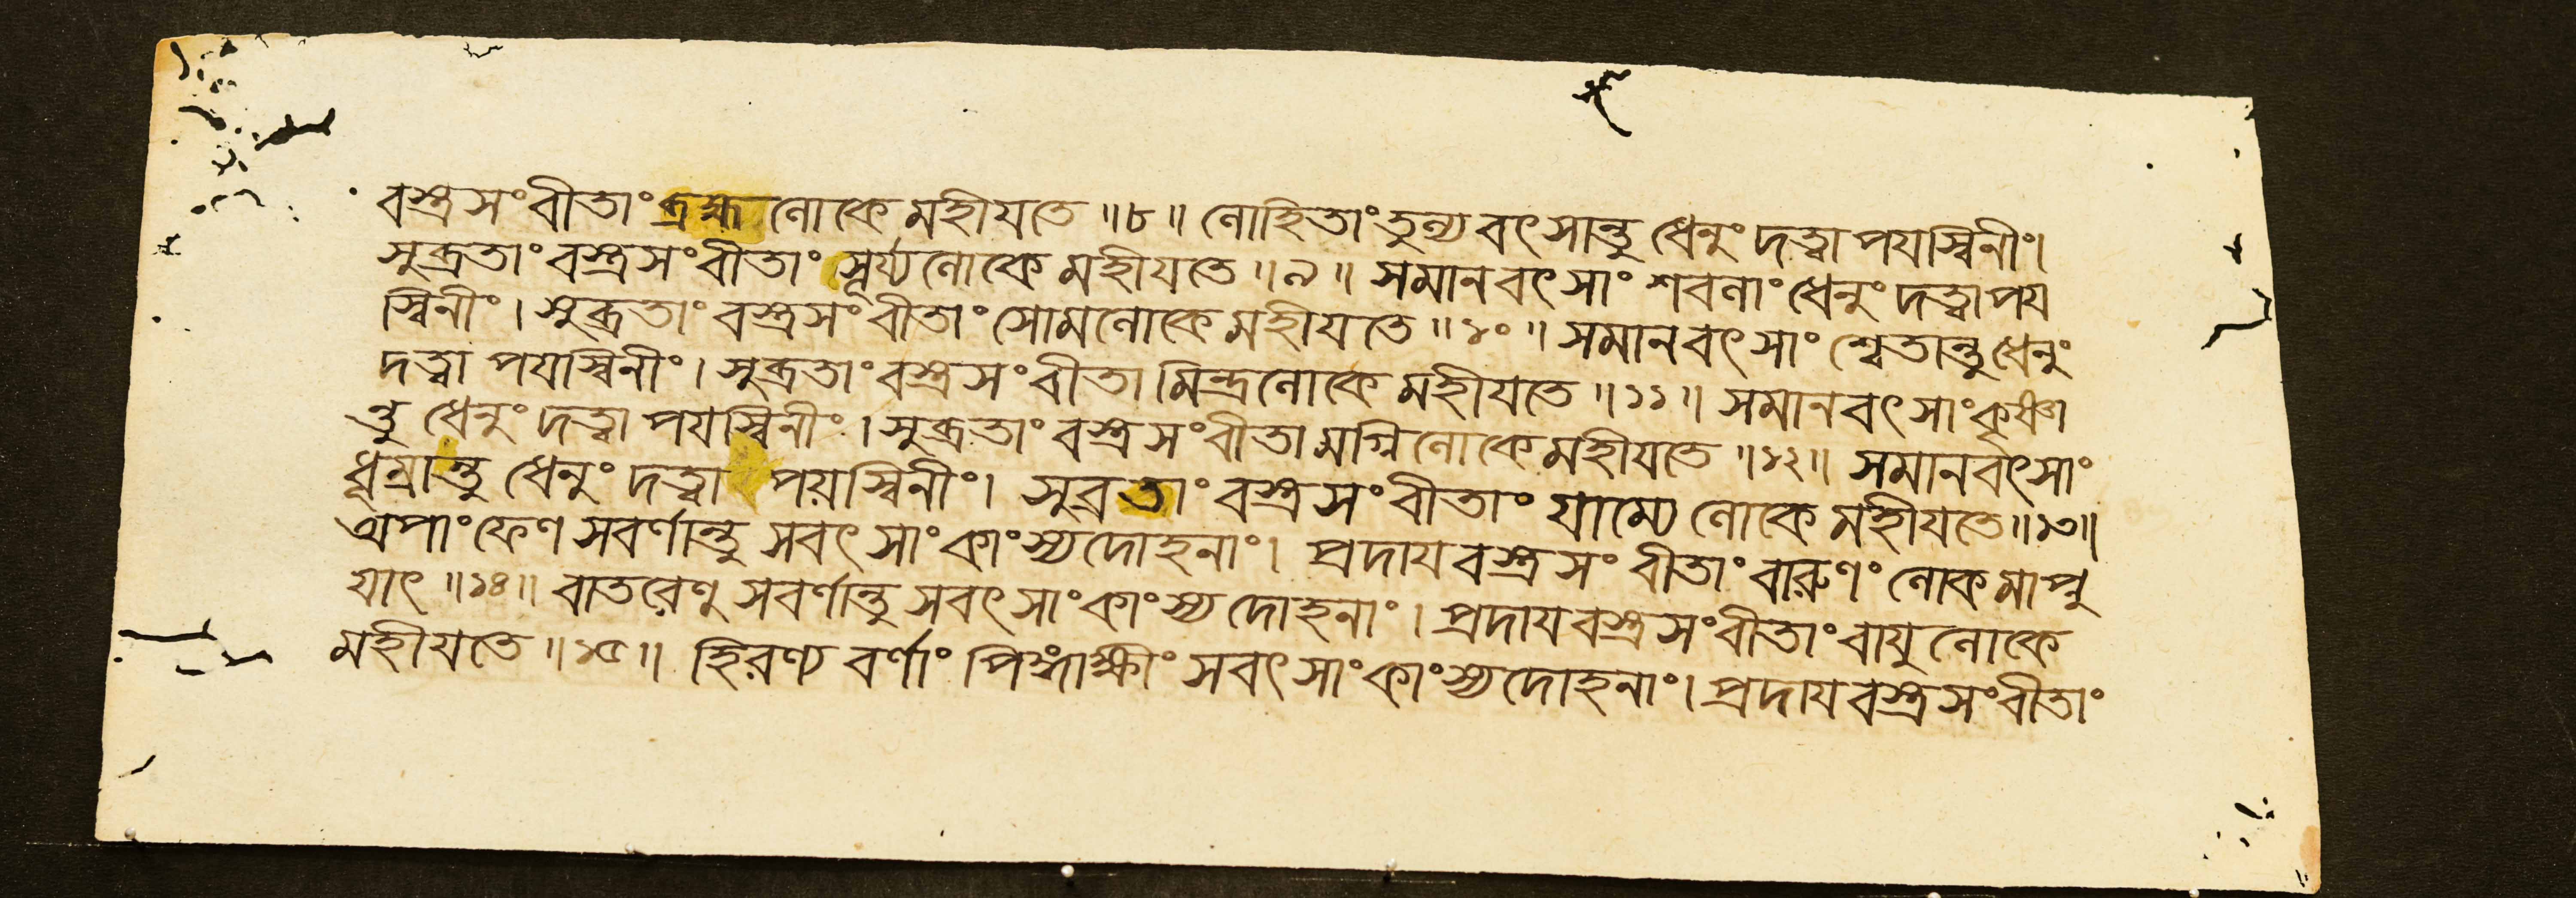 বস্ত্রসংবীতাং ব্রহ্মলোকে মহীযতে ॥৮॥ লোহিতাং তুল্যবৎসান্তু ধেনুং দত্ত্বা পযস্বিনীং।
সুব্রতাং বস্ত্রসংবীতাং সূর্য্যলোকে মহীযতে ॥৯॥ সমানবৎসাং শবলাং ধেনুং দত্ত্বা পয
স্বিনীং। সুব্রতাং বস্ত্রসংবীতাং সোমলোকে মহীযতে ॥১০॥ সমানবৎসাং শ্বেতান্তু ধেনুং
দত্ত্বা পযস্বিনীং। সুব্রতাং বস্ত্রসংবীতামিন্দ্রলোকে মহীযতে ॥১১॥ সমানবৎসাং কৃষ্ণা
ন্তু ধেনুং দত্ত্বা পযস্বিনীং। সুব্রতাং বস্ত্রসংবীতামগ্নিলোকে মহীযতে ॥১২॥ সমানবৎসাং
ধূম্রান্তু ধেনুং দত্ত্বা পয়স্বিনীং। সুব্রতাং বস্ত্রসংবীতাং যাম্যে লোকে মহীযতে ॥১৩॥
অপাং ফেণসবর্ণান্তু সবৎসাং কাংস্যদোহনাং। প্রদায বস্ত্রসংবীতাং বারুণং লোকমাপ্নু
যাৎ ॥১৪॥ বাতরেণুসবর্ণান্তু সবৎসাং কাংস্যদোহনাং। প্রদায বস্ত্রসংবীতাং বাযুলোকে
মহীযতে ॥১৫॥ হিরণ্যবর্ণাং পিঙ্গাক্ষীং সবৎসাং কাংস্যদোহনাং। প্রদায বস্ত্রসংবীতাং